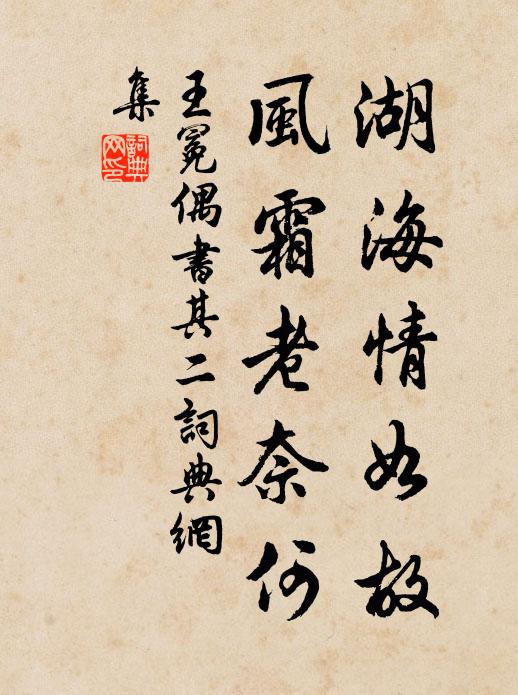 湖海情如故
風霜老奈何
王冕偶書其二詞典網
集
詞典
網印